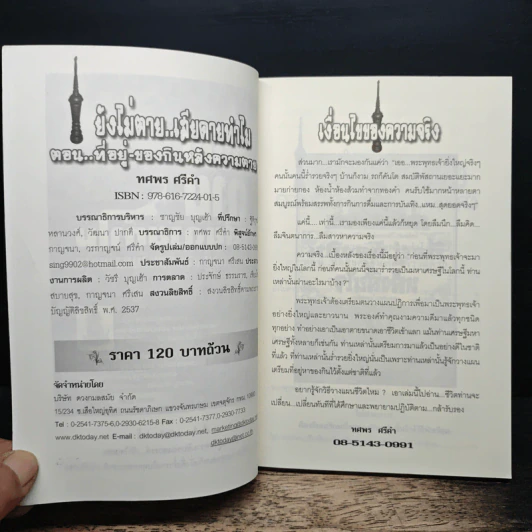 ยังไม่ตาย..เสียดายทำไม
ตอน..ที่อยู่-ของกินหลังความตาย
ทศพร ศรีคำ
ISBN : 978-616-7224-01-5
บรรณาธิการบริหาร : ชาญชัย บุญเฮ้า ที่ปรึกษา :
ทยานวงศ์, วัฒนา ปากดี บรรณาธิการ : ทศพร ศรีคำ พิสูจน์อักษร
กาญจนา, วรกาญจน์ ศรีคำ จัดรูปเล่ม/ออกแบบปก : 08-510-
sing9902@hotmail.com ประชาสัมพันธ์ : กาญจนา ศรีเสน ประสาน
งานการผลิต : วัชรี บุญเฮ้า การตลาด : ประศักธ์ ธรรมภา,
สบายสุข, กาญจนา ศรีเสน สงวนลิขสิทธิ์ : สงวนลิขสิทธิ์ตาม
บัญญัติลิขสิทธิ์ พ.ศ. 2537
ราคา 120 บาทถ้วน
จัดจำหน่ายโดย
บริษัท ดวงกมลสมัย จำกัด
15/234 ซ.เสือใหญ่อุทิศ ถนนรัชดาภิเษก แขวงจันทรเกษม เขตจตุจักร กทม.
Tel : 0-2541-7375-6,0-2930-6215-8 Fax : 0-2541-7377,0-2930-7733
www.dktoday.net E-mail : dktoday@dktoday.net,
dktoday@csnet.co.th
เงื่อนไขของความจริง
ส่วนมาก...เรามักจะมองกันแค่ว่า "เออ...พระพุทธเจ้ายิ่งใหญ่จริงๆ
คนนั้นคนนี้ร่ำรวยจริงๆ บ้านก็งาม รถก็คันโต สมบัติพัสถานเยอะแยะมาก
มายก่ายกอง ห้องน้ำห้องส้วมทำจากทองคำ คนรับใช้มากหน้าหลายตา
สมบูรณ์พร้อมสรรพทั้งการกินการดื่มและการบันเทิง, แหม..สุดยอดจริงๆ"
แค่นี้.....เท่านี้....เรามองเพียงแค่นี้แล้วก็หยุด โดยลืมนึก...ลืมคิด...
ลืมจินตนาการ...ลืมสาวหาความจริง
ความจริง..เบื้องหลังของเรื่องนี้มีอยู่ว่า "ก่อนที่พระพุทธเจ้าจะมา
ยิ่งใหญ่ในโลกนี้ ก่อนที่คนนั้นคนนี้จะมาร่ำรวยเป็นมหาเศรษฐีในโลกนี้ ท่าน
เหล่านั้นผ่านอะไรมาบ้าง ?"
พระพุทธเจ้าต้องเตรียมคนวางแผนปฏิการเพื่อมาเป็นพระพุทธเจ้า
อย่างยิ่งใหญ่และยาวนาน พระองค์ทำคุณงามความดีมาแล้วทุกชนิด
ทุกอย่าง ทำอย่างเอาเป็นเอาตายขนาดเอาชีวิตเข้าแลก แม้นท่านเศรษฐีมหา
เศรษฐีทั้งหลายก็เช่นกัน ท่านเหล่านั้นเตรียมการมาแล้วเป็นอย่างดีในชาติ
ที่แล้ว ที่ท่านเหล่านั้นร่ำรวยยิ่งใหญ่นั่นเป็นเพราะท่านเหล่านั้นรู้จักวางแผน
เตรียมที่อยู่หาของกินไว้ตั้งแต่ชาติที่แล้ว
อยากรู้จักวิธีวางแผนชีวิตไหม ? เอาเล่มนี้ไปอ่าน...ชีวิตท่านจะ
เปลี่ยน...เปลี่ยนทันทีที่ได้ศึกษาและพยายามปฏิบัติตาม...กล้ารับรอง
ทศพร ศรีคำ
08-5143-0991